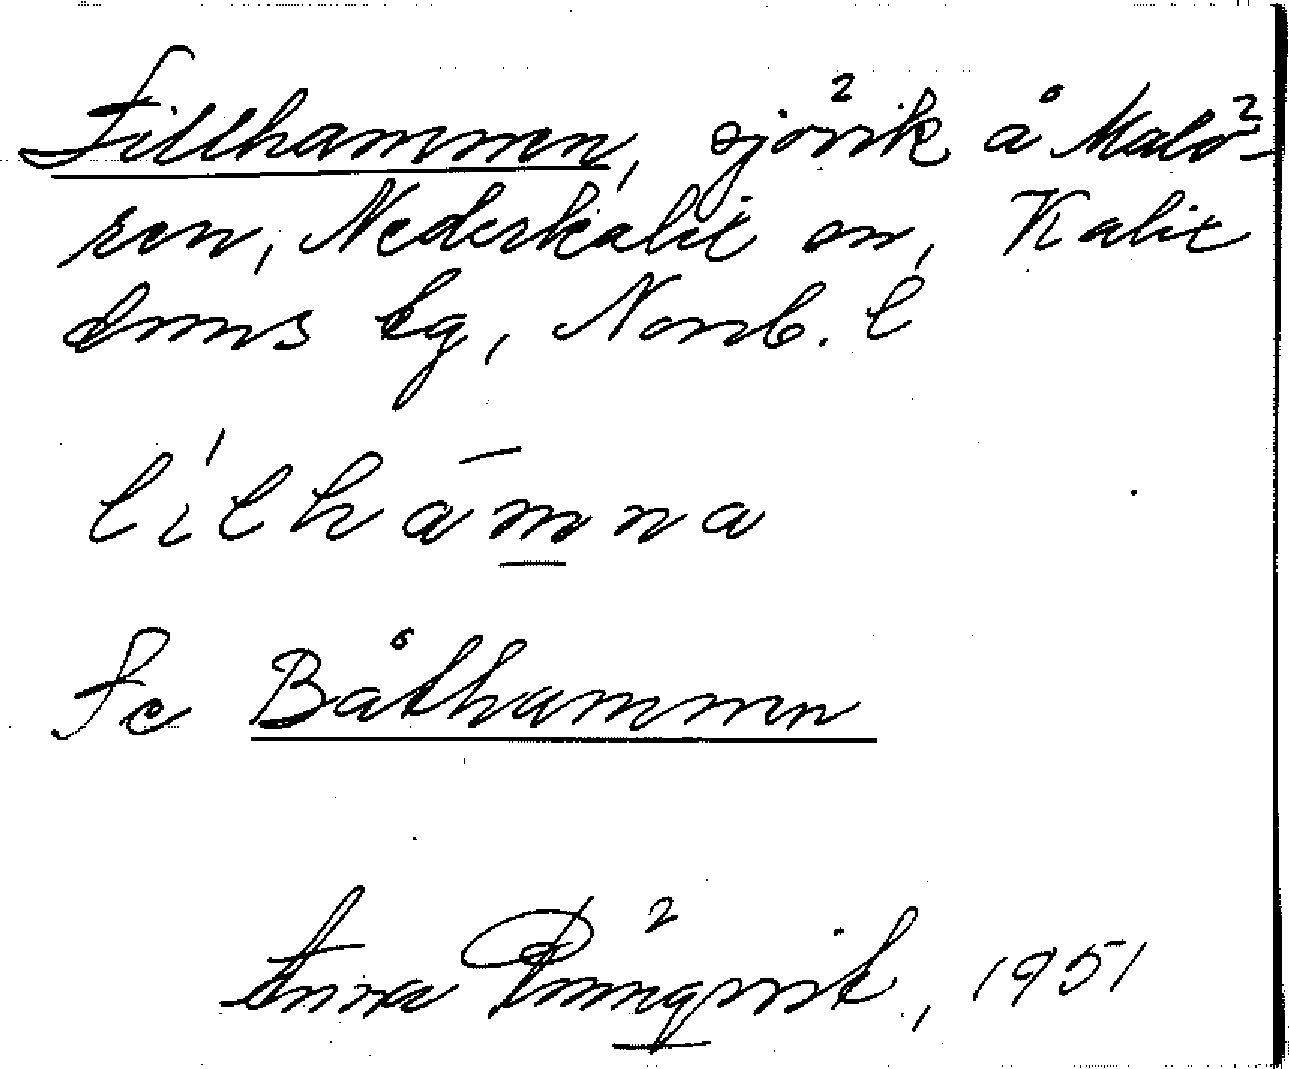 Lillhamnen, sjövik å Malö-
ren, Nederkalix sn, Kalix
dms tg, Norrb. l
lilhamna
Se Båthamnen
Anna Rönnqvist, 1951